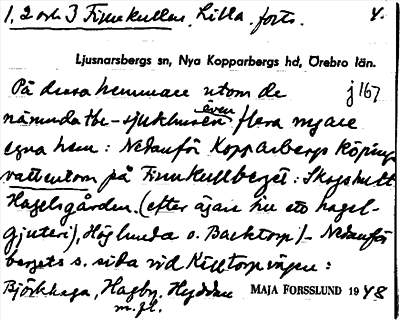 1, 2 och 3 Finnkullen, Lilla, forts. 4.
Ljusnarsbergs sn, Nya Kopparbergs hd, Örebro län.
På dessa hemmare utom de j 167
nämnda tbc-sjukhusen även flera nyare
egna hem: Nedanför Kopparbergs köping
vattentorn på Finnkullberget: Skogshult
Hagelsgården (efter ägare hu ett hagel-
gjuteri), Höglunda o. Backtorp/- Nedanför
bergets s. sida vid Killtorpvägen:
Björkhaga, Hagby, Hyddan
m.fl.
MAJA FORSSLUND 1948